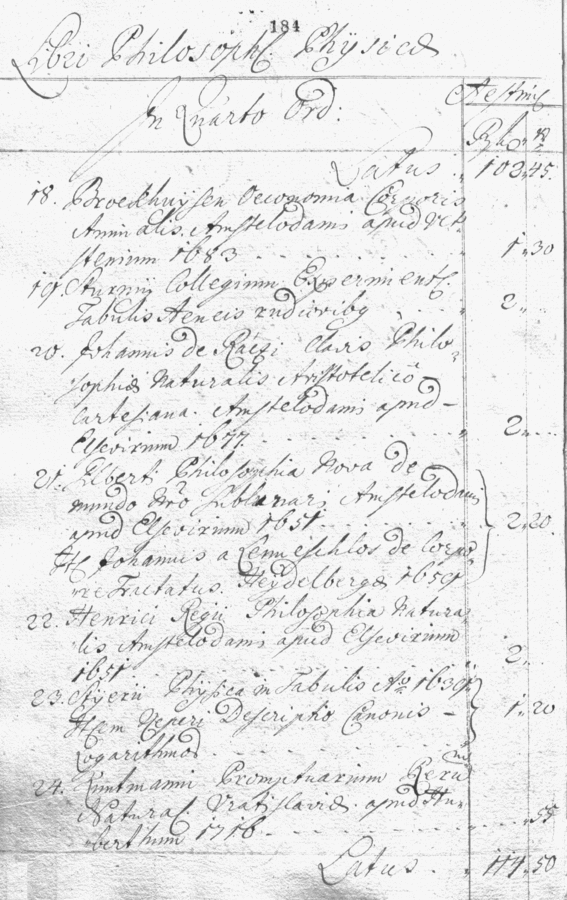 184
Libri Philosoph: Physicæ
Æstim:
In Quarto Ord:
Latus . 102. 45.
18. Broeckhuysen Oeconomia Corporis
Animalis. Amstelodami apud Vet-
stenium 1683 1. 30
19. Sturmij Collegium Experiment:
Tabulis Aeneis 2. . .
20. Johannis de Raëgi Clavis Philo-
sophiæ Naturalis Aristotelicò-
Cartesiana. Amstelodami apud
Elsevirum 1677 2. . .
21. Gilberti Philosophia Nova de
mundo nrô Sublunari Amstelodami
apud Elsevirum 1651 2. 20
It. Johannis a Lemeschlos de Corpo-
re Tractatus. Heydelbergæ 1659
22. Henrici Regii Philosophia Natura-
lis Amstelodami apud Elsevirium
1651 2.
23. Styerii Physica in Tabulis Aō 1639 1. 20
Item Neperi Descriptio Canonis
Logarithmor̄
24. Kuntmanni Promptuarium Rerum
Natural: Vratislaviæ apud Hu-
berthum 1716 . 55
Latus . 114. 50